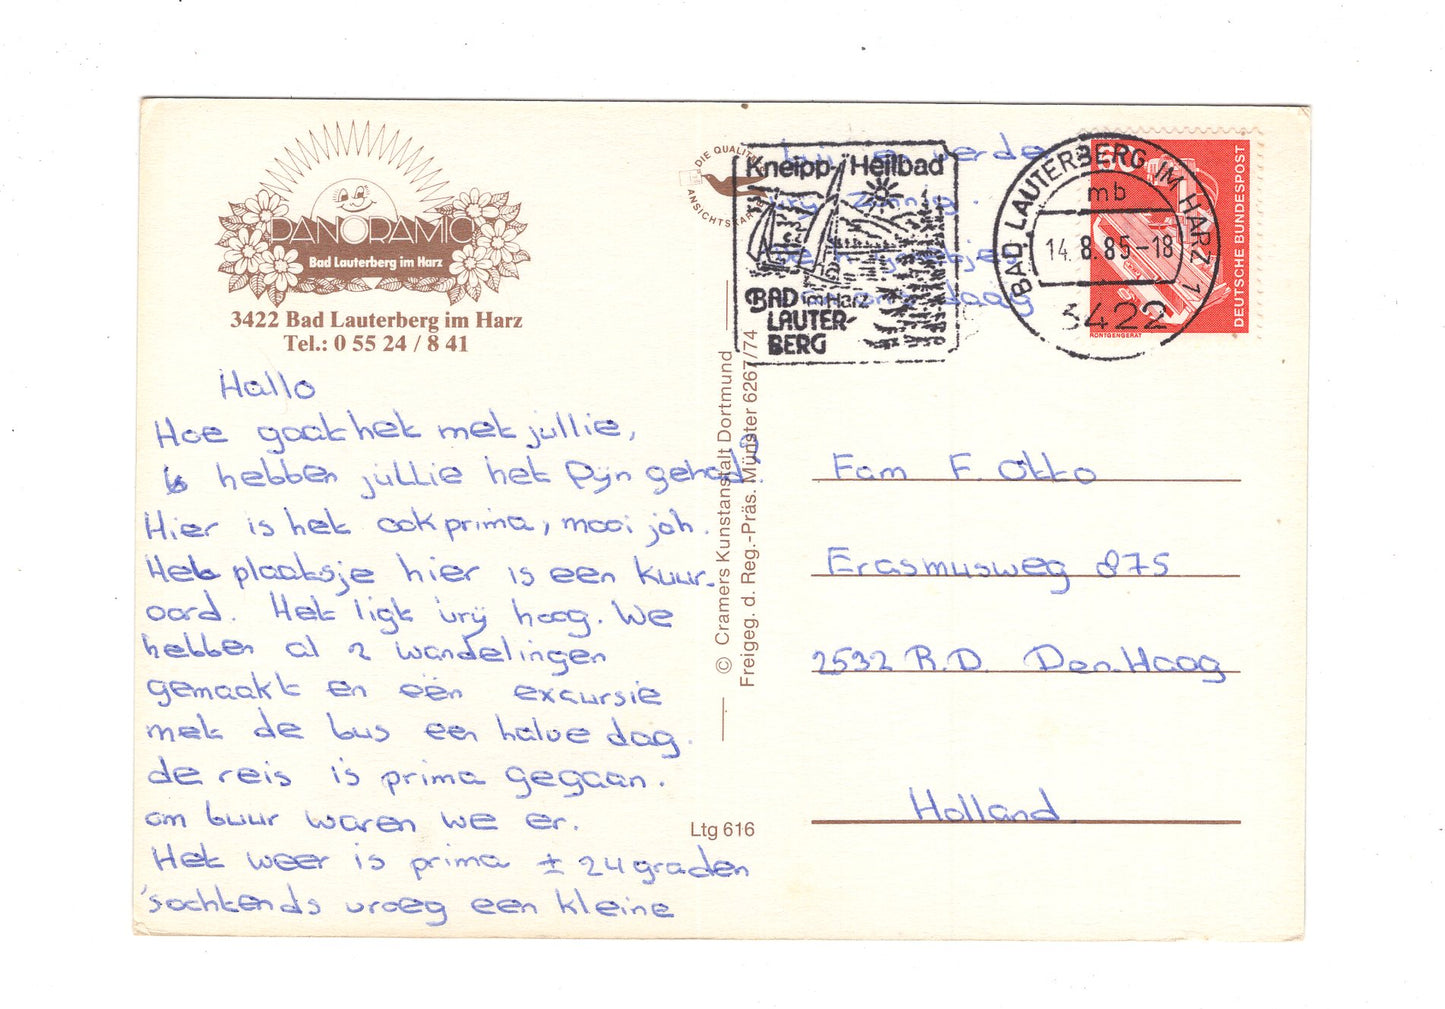 PANORAMIC
Bad Lauterberg im Harz
3422 Bad Lauterberg im Harz
Tel.: 0 55 24 / 8 41
Hallo
Hoe gaat het met jullie,
hebben jullie het fijn gehad?
Hier is het ook prima, mooi joh.
Het plaatsje hier is een kuur-
oord. Het ligt vrij hoog. We
hebben al 2 wandelingen
gemaakt en één excursie
met de bus een halve dag.
de reis is prima gegaan.
om buur waren we er.
Het weer is prima ± 24 graden
'sochtends vroeg een kleine
werd
vrij zonnig.
DIE QUALITÄTS
ANSICHTSKARTE
© Cramers Kunstanstalt Dortmund
Freigeg. d. Reg.-Präs. Münster 6267/74
Ltg 616
Kneipp-Heilbad
BAD im Harz
LAUTER-
BERG
BAD LAUTERBERG IM HARZ 1
mb
14.8.85-18
3422
60
DEUTSCHE BUNDESPOST
RÖNTGENGERÄT
Fam F. Otto
Erasmusweg 875
2532 R.D. Den Haag
Holland